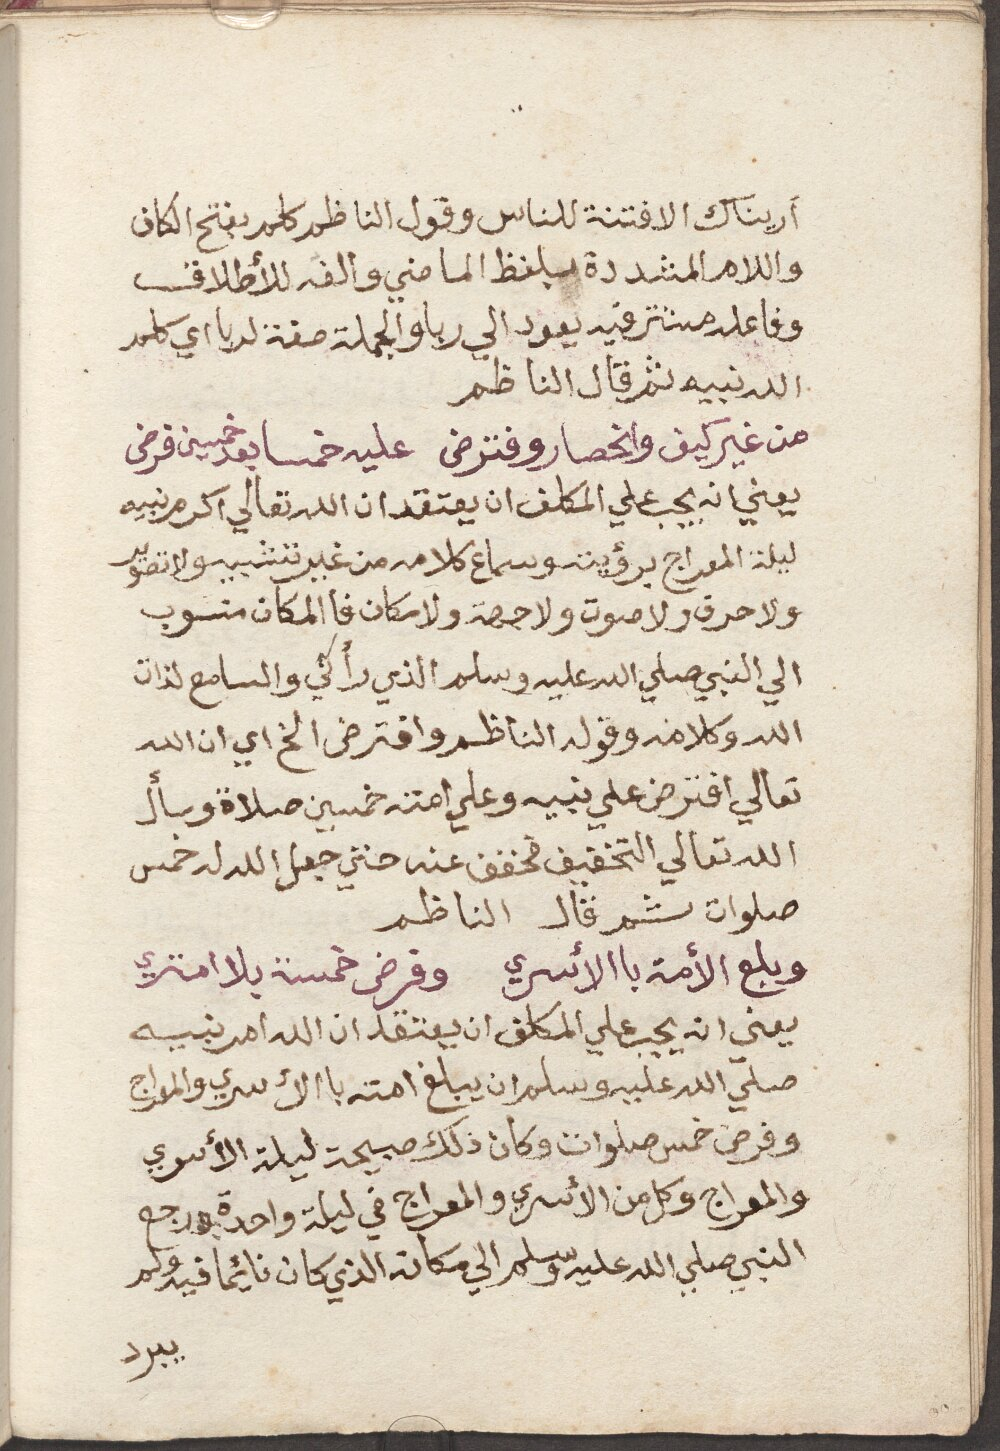 أريناك الا فتنة للناس وقول الناظم كلم بفتح الكاف
واللام المشددة بلفظ الماضي والفه للأطلاق
وفاعله مستتر فيه يعود الي ربا والجملة صفة لربا اي كلم
الله نبيه ثم قال الناظم
من غير كيف وانحصار وفترض عليه خمسا بعد خمسين فرض
يعني انه يجب علي المكلف ان يعتقد ان الله تعالي اكرم نبيه
ليلة المعراج برؤيته وسماع كلامه من غير تشبيه ولا تصوير
ولا حرف ولا صوت ولا جهة ولا مكان فاالمكان منسوب
الي النبي صلي الله عليه وسلم الذي رأئي والسامع لذات
الله وكلامه وقوله الناظم وافترض الخ اي ان الله
تعالي افترض علي نبيه وعلي امته خمسين صلاة وسأل
الله تعالي التخفيف فخفف عنه حتي جعل الله له خمس
صلوات ثم قال الناظم
وبلع الأمة باالأسري وفرض خمسة بلا امتري
يعني انه يجب علي المكلف ان يعتقد ان الله امر نبيه
صلي الله عليه وسلم ان يبلغ امته باالأسري والمعراج
وفرض خمس صلوات وكان ذلك صبيحة ليلة الأسري
والمعراج وكل من الأسري والمعراج في ليلة واحدة ورجع
النبي صلي الله عليه وسلم الي مكانه الذي كان نائما فيه ولم
يبرد